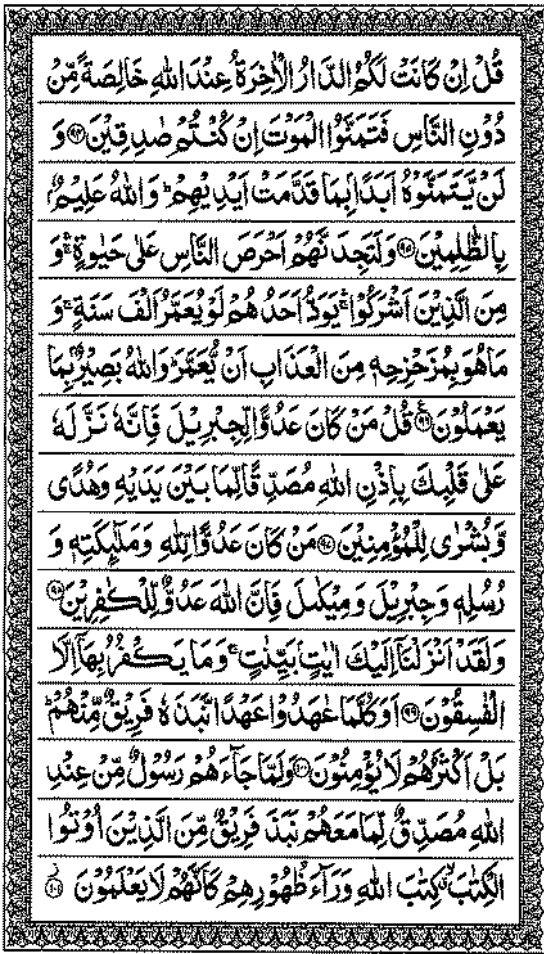 قُلْ اِنْ كَانَتْ لَكُمُ الدَّارُ الْاٰخِرَةُ عِنْدَ اللّٰهِ خَالِصَةً مِّنْ
دُوْنِ النَّاسِ فَتَمَنَّوُا الْمَوْتَ اِنْ كُنْتُمْ صٰدِقِيْنَ ﴿۹۴﴾ وَ
لَنْ يَّتَمَنَّوْهُ اَبَدًۢا بِمَا قَدَّمَتْ اَيْدِيْهِمْ ؕ وَاللّٰهُ عَلِيْمٌۢ
بِالظّٰلِمِيْنَ ﴿۹۵﴾ وَلَتَجِدَنَّهُمْ اَحْرَصَ النَّاسِ عَلٰى حَيٰوةٍ ۚۛ وَ
مِنَ الَّذِيْنَ اَشْرَكُوْا ۚۛ يَوَدُّ اَحَدُهُمْ لَوْ يُعَمَّرُ اَلْفَ سَنَةٍ ۚ وَ
مَا هُوَ بِمُزَحْزِحِهٖ مِنَ الْعَذَابِ اَنْ يُّعَمَّرَ ؕ وَاللّٰهُ بَصِيْرٌۢ بِمَا
يَعْمَلُوْنَ ﴿۹۶﴾ قُلْ مَنْ كَانَ عَدُوًّا لِّجِبْرِيْلَ فَاِنَّهٗ نَزَّلَهٗ
عَلٰى قَلْبِكَ بِاِذْنِ اللّٰهِ مُصَدِّقًا لِّمَا بَيْنَ يَدَيْهِ وَهُدًى
وَّبُشْرٰى لِلْمُؤْمِنِيْنَ ﴿۹۷﴾ مَنْ كَانَ عَدُوًّا لِّلّٰهِ وَمَلٰٓئِكَتِهٖ وَ
رُسُلِهٖ وَجِبْرِيْلَ وَمِيْكٰىلَ فَاِنَّ اللّٰهَ عَدُوٌّ لِّلْكٰفِرِيْنَ ﴿۹۸﴾
وَلَقَدْ اَنْزَلْنَاۤ اِلَيْكَ اٰيٰتٍۭ بَيِّنٰتٍ ۚ وَمَا يَكْفُرُ بِهَاۤ اِلَّا
الْفٰسِقُوْنَ ﴿۹۹﴾ اَوَكُلَّمَا عٰهَدُوْا عَهْدًا نَّبَذَهٗ فَرِيْقٌ مِّنْهُمْ ؕ
بَلْ اَكْثَرُهُمْ لَا يُؤْمِنُوْنَ ﴿۱۰۰﴾ وَلَمَّا جَآءَهُمْ رَسُوْلٌ مِّنْ عِنْدِ
اللّٰهِ مُصَدِّقٌ لِّمَا مَعَهُمْ نَبَذَ فَرِيْقٌ مِّنَ الَّذِيْنَ اُوْتُوا
الْكِتٰبَ ۙ كِتٰبَ اللّٰهِ وَرَآءَ ظُهُوْرِهِمْ كَاَنَّهُمْ لَا يَعْلَمُوْنَ ﴿۱۰۱﴾